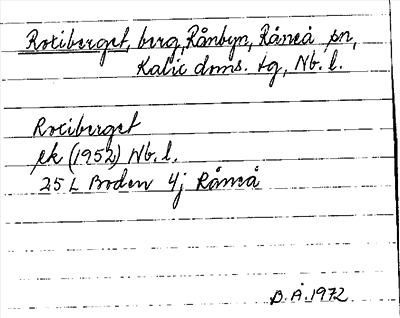 Rotiberget, berg, Rånbyn, Råneå sn,
Kalix dms. tg, Nb. l.
Rotiberget
ek (1952) Nb. l.
25 L Boden 4j Råneå
B.Å. 1972